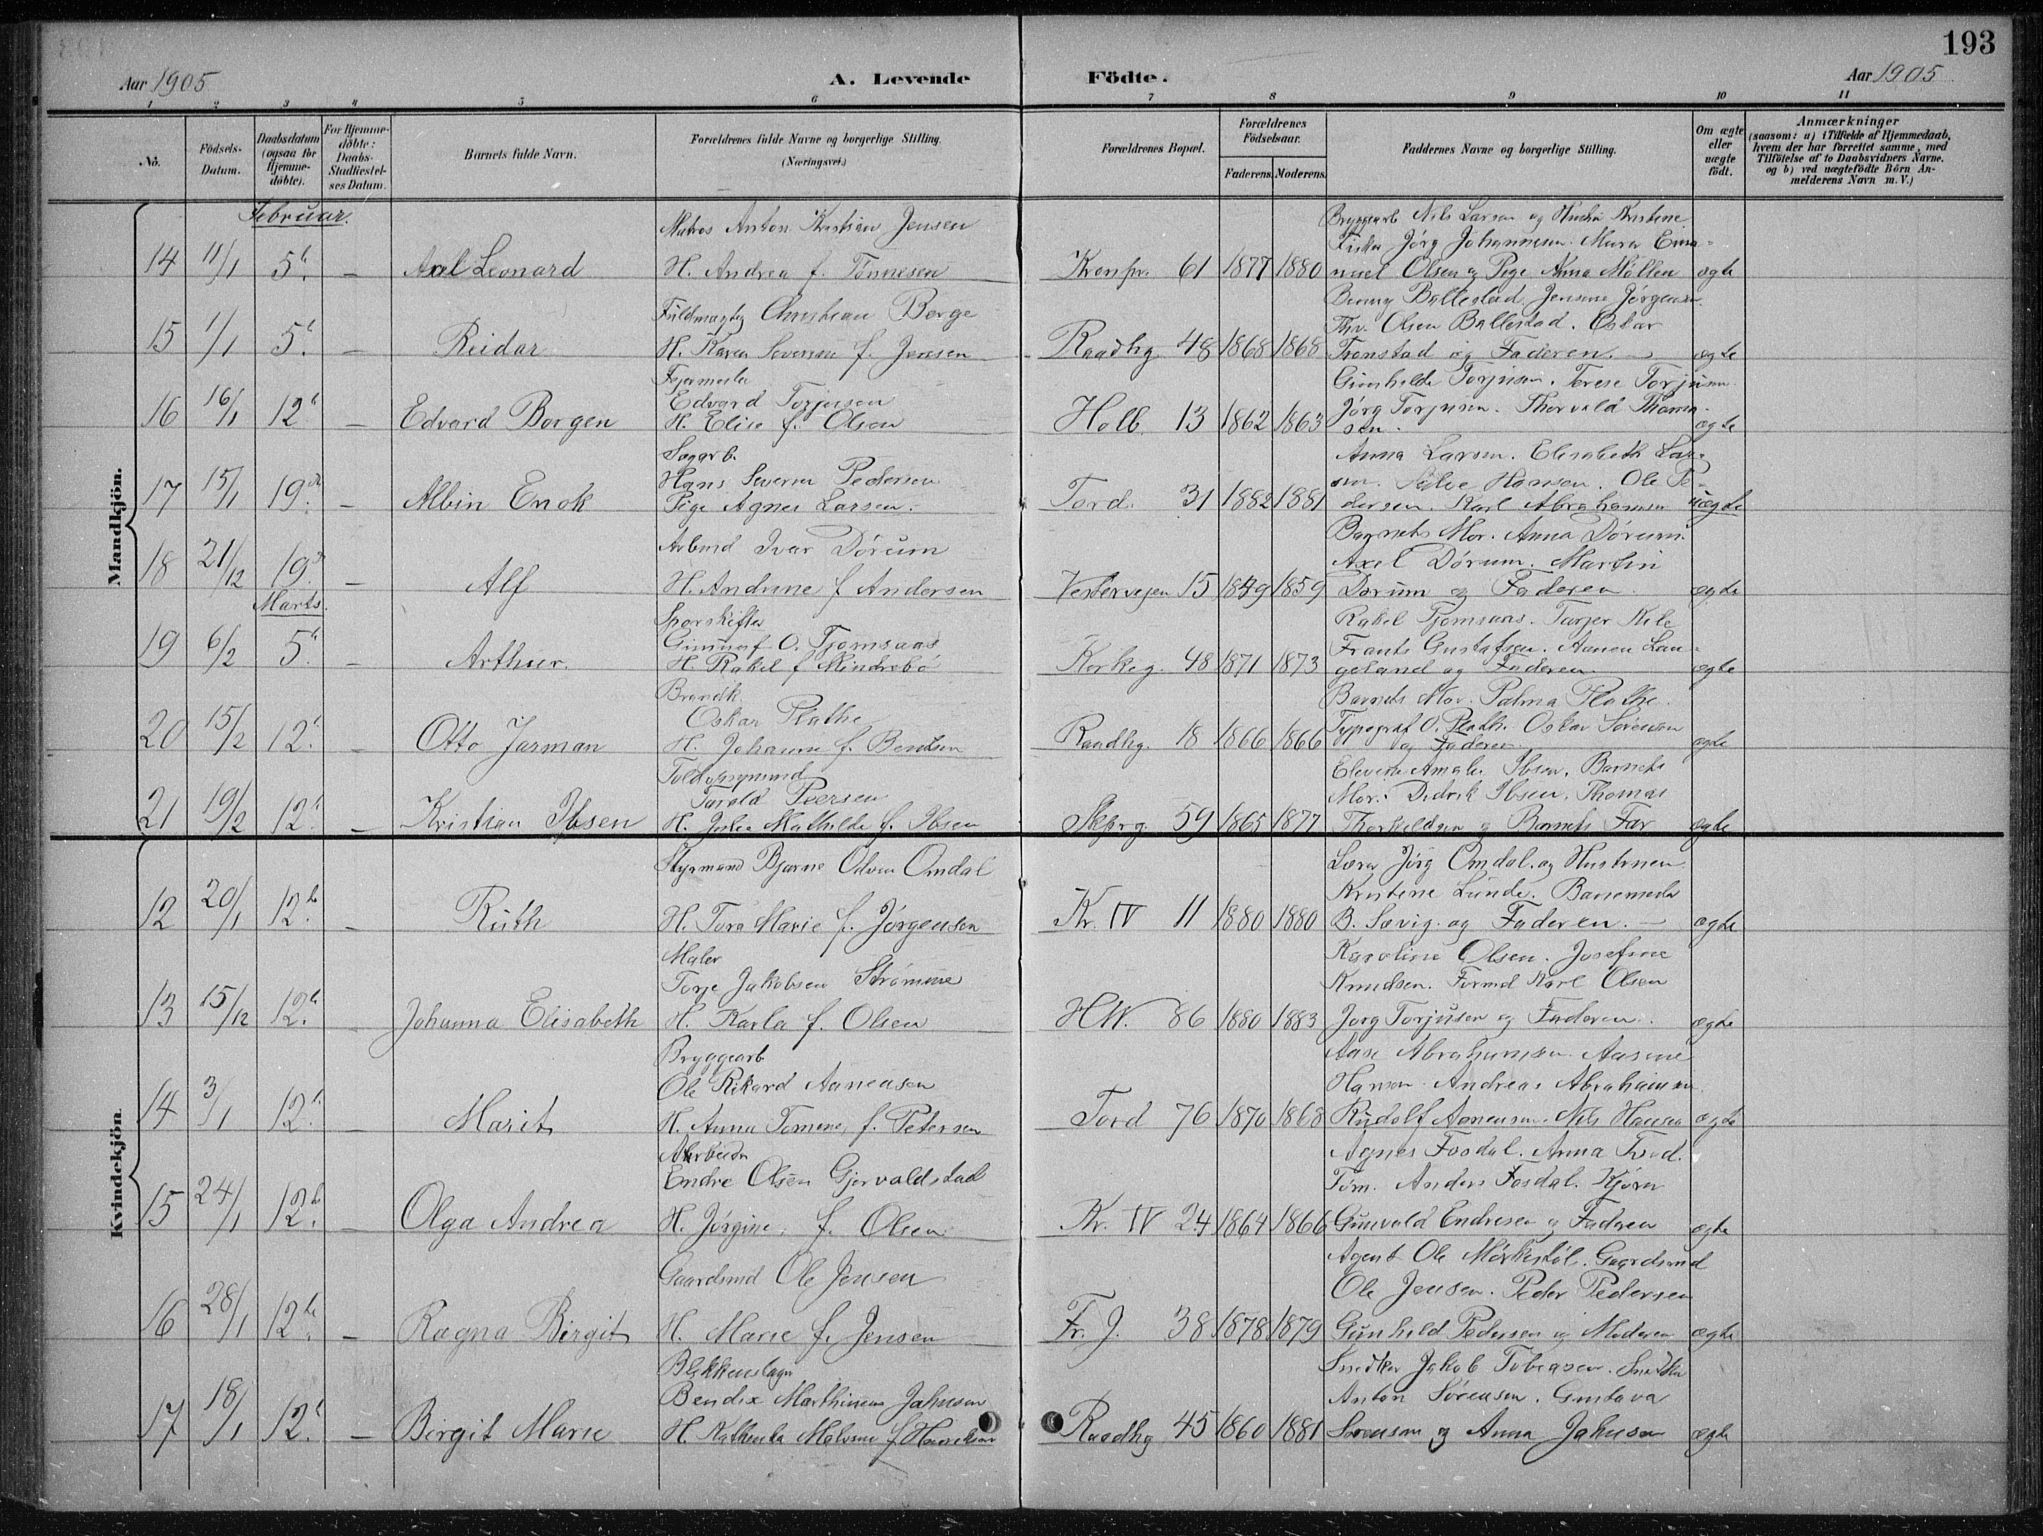 193
Aar 1905
A. Levende
Födte.
Aar 1905
1 2 3 4 5 6 7 8 9 10 11
No.
Födsels-
Datum.
Daabsdatum
(ogsaa for
Hjemme-
döbte).
For Hjemme-
döbte:
Daabs-
Stadfæstel-
ses Datum.
Barnets fulde Navn.
Forældrenes fulde Navne og borgerlige Stilling.
(Næringsvei.)
Forældrenes Bopæl.
Forældrenes
Födselsaar.
Faderens. Moderens.
Faddernes Navne og borgerlige Stilling.
Om ægte
eller
uægte
födt.
Anmærkninger
(saasom: a) i Tilfælde af Hjemmedaab,
hvem der har forrettet samme, med
Tilföielse af to Daabsvidners Navne,
og b) ved uægtefödte Börn An-
melderens Navn m. V.)
Mandkjön.
Februar.
14 11/1 5t. — Axel Leonard
Matros Anton Kristian Jensen
H. Andrea f. Tönnesen
Kronpr. 61 1877 1880
Bryggearb Nils Larsen og Hustru Kristine
Fisker Jörg Johannesen. Murer Ema-
nuel Olsen og Pige Anna Möllen ægte
15 1/1 5t. — Reidar
Fuldmægtig Christian Berge
H. Karen Severine f. Jensen
Raadhg. 48 1868 1868
Benny Ballestad. Jensine Jörgensen.
Thv. Olsen Ballestad. Oskar
Tronstad og Faderen. — ægte
16 16/1 12t. — Edvard Borgen
Edvard Torjusen
H. Elise f. Olsen
Holb. 13 1862 1863
Gunhilde Torjusen. Terese Torjusen.
Jörg Torjusen. Thorvald Thoma-
sen. ægte
17 15/1 19de. — Albin Enok
Sagarb.
Hans Severin Pedersen
Pige Agnes Larsen.
Tord. 31 1882 1881
Anna Larsen. Elisabeth Lar-
sen. Hansen. Ole Pe-
dersen. Karl Abrahamsen uægte
18 21/12 19d. — Alf
Arbmd Ivar Dörum
H. Andrine f Andersen
Vestervejen 15 1849 1859
Barnets Mor. Anna Dörum.
Axel Dörum. Martin
Dörum og Faderen. ægte
Marts.
19 6/2 5t. — Arthur.
Sporskifter
Gunnuf O. Tjomsaas
H. Rakel f Mindrebö
Korkeg. 48 1871 1873
Rakel Tjomsaas. Tarjer Kile
Frants Gustafsen. Aanen Lan-
geland og Faderen ægte
20 15/2 12t. — Otto Jarman
Brandk.
Oskar Plathe
H. Johanne f. Bentsen
Raadhg. 18 1866 1866
Barnets Mor. Palma Plathe.
Typograf O. Plath. Oskar Sörensen
og Faderen ægte
21 19/2 12t. — Kristian Ibsen
Toldopsynsmd
Tarald Peersen
H. Mathilde f. Ibsen
Skprg. 59 1865 1877
Amalie Ibsen. Barnets
Mor. Didrik Ibsen. Thomas
Thorkildsen og Barnets Far ægte
Kvindekjön.
12 20/1 12t. — Ruth
Styrmand Bjarne Odven Omdal
H. Tora Marie f. Jörgensen
Kr. IV 11 1880 1880
Lærer Jörg Omdal. og Hustruen
Kristine Lunde. Banemester
B. Sævig. og Faderen. — ægte
13 15/12 12t. — Johanna Elisabeth
Maler
Torje Jakobsen Strömme
H. Karla f. Olsen
H.W. 86 1880 1883
Karoline Olsen. Josefine
Knudsen. Formd Karl Olsen
Jörg Torjusen og Faderen. ægte
14 3/1 12t. Marit
Bryggearb
Ole Rikard Aanensen
H. Anna Tomine, f. Petersen
Tord 76 1870 1868
Aase Abrahamsen. Aasine
Hansen. Andreas Abrahamsen.
Rudolf Aanensen. Nils Hansen ægte
15 24/1 12t. — Olga Andrea
Arbeider
Endre Olsen Gjervaldstad
H. Jörgine, f. Olsen
Kr. IV 24 1864 1866
Agnes Fosdal. Anna
Töm. Anders Fosdal. Kjörer
Gunvald Endresen og Faderen ægte
16 28/1 12te. — Ragna Birgit
Gaardsmd Ole Jensen
H. Marie f. Jensen
Fr. J. 38 1878 1879
Agent Ole Mörkestöl. Gaardsmd
Ole Jensen. Peder Pedersen
Gunhild Pedersen og Moderen ægte
17 18/1 12t. — Birgit Marie
Blikkenslager
Bendix Marthinius Jahnsen
H Kathenka Malvine f Henriksen
Raadhg 45 1860 1881
Snedker Jakob Tobiasen. Snedker
Anton Sörensen. Gustava
Sörensen og Anna Jahnsen ægte